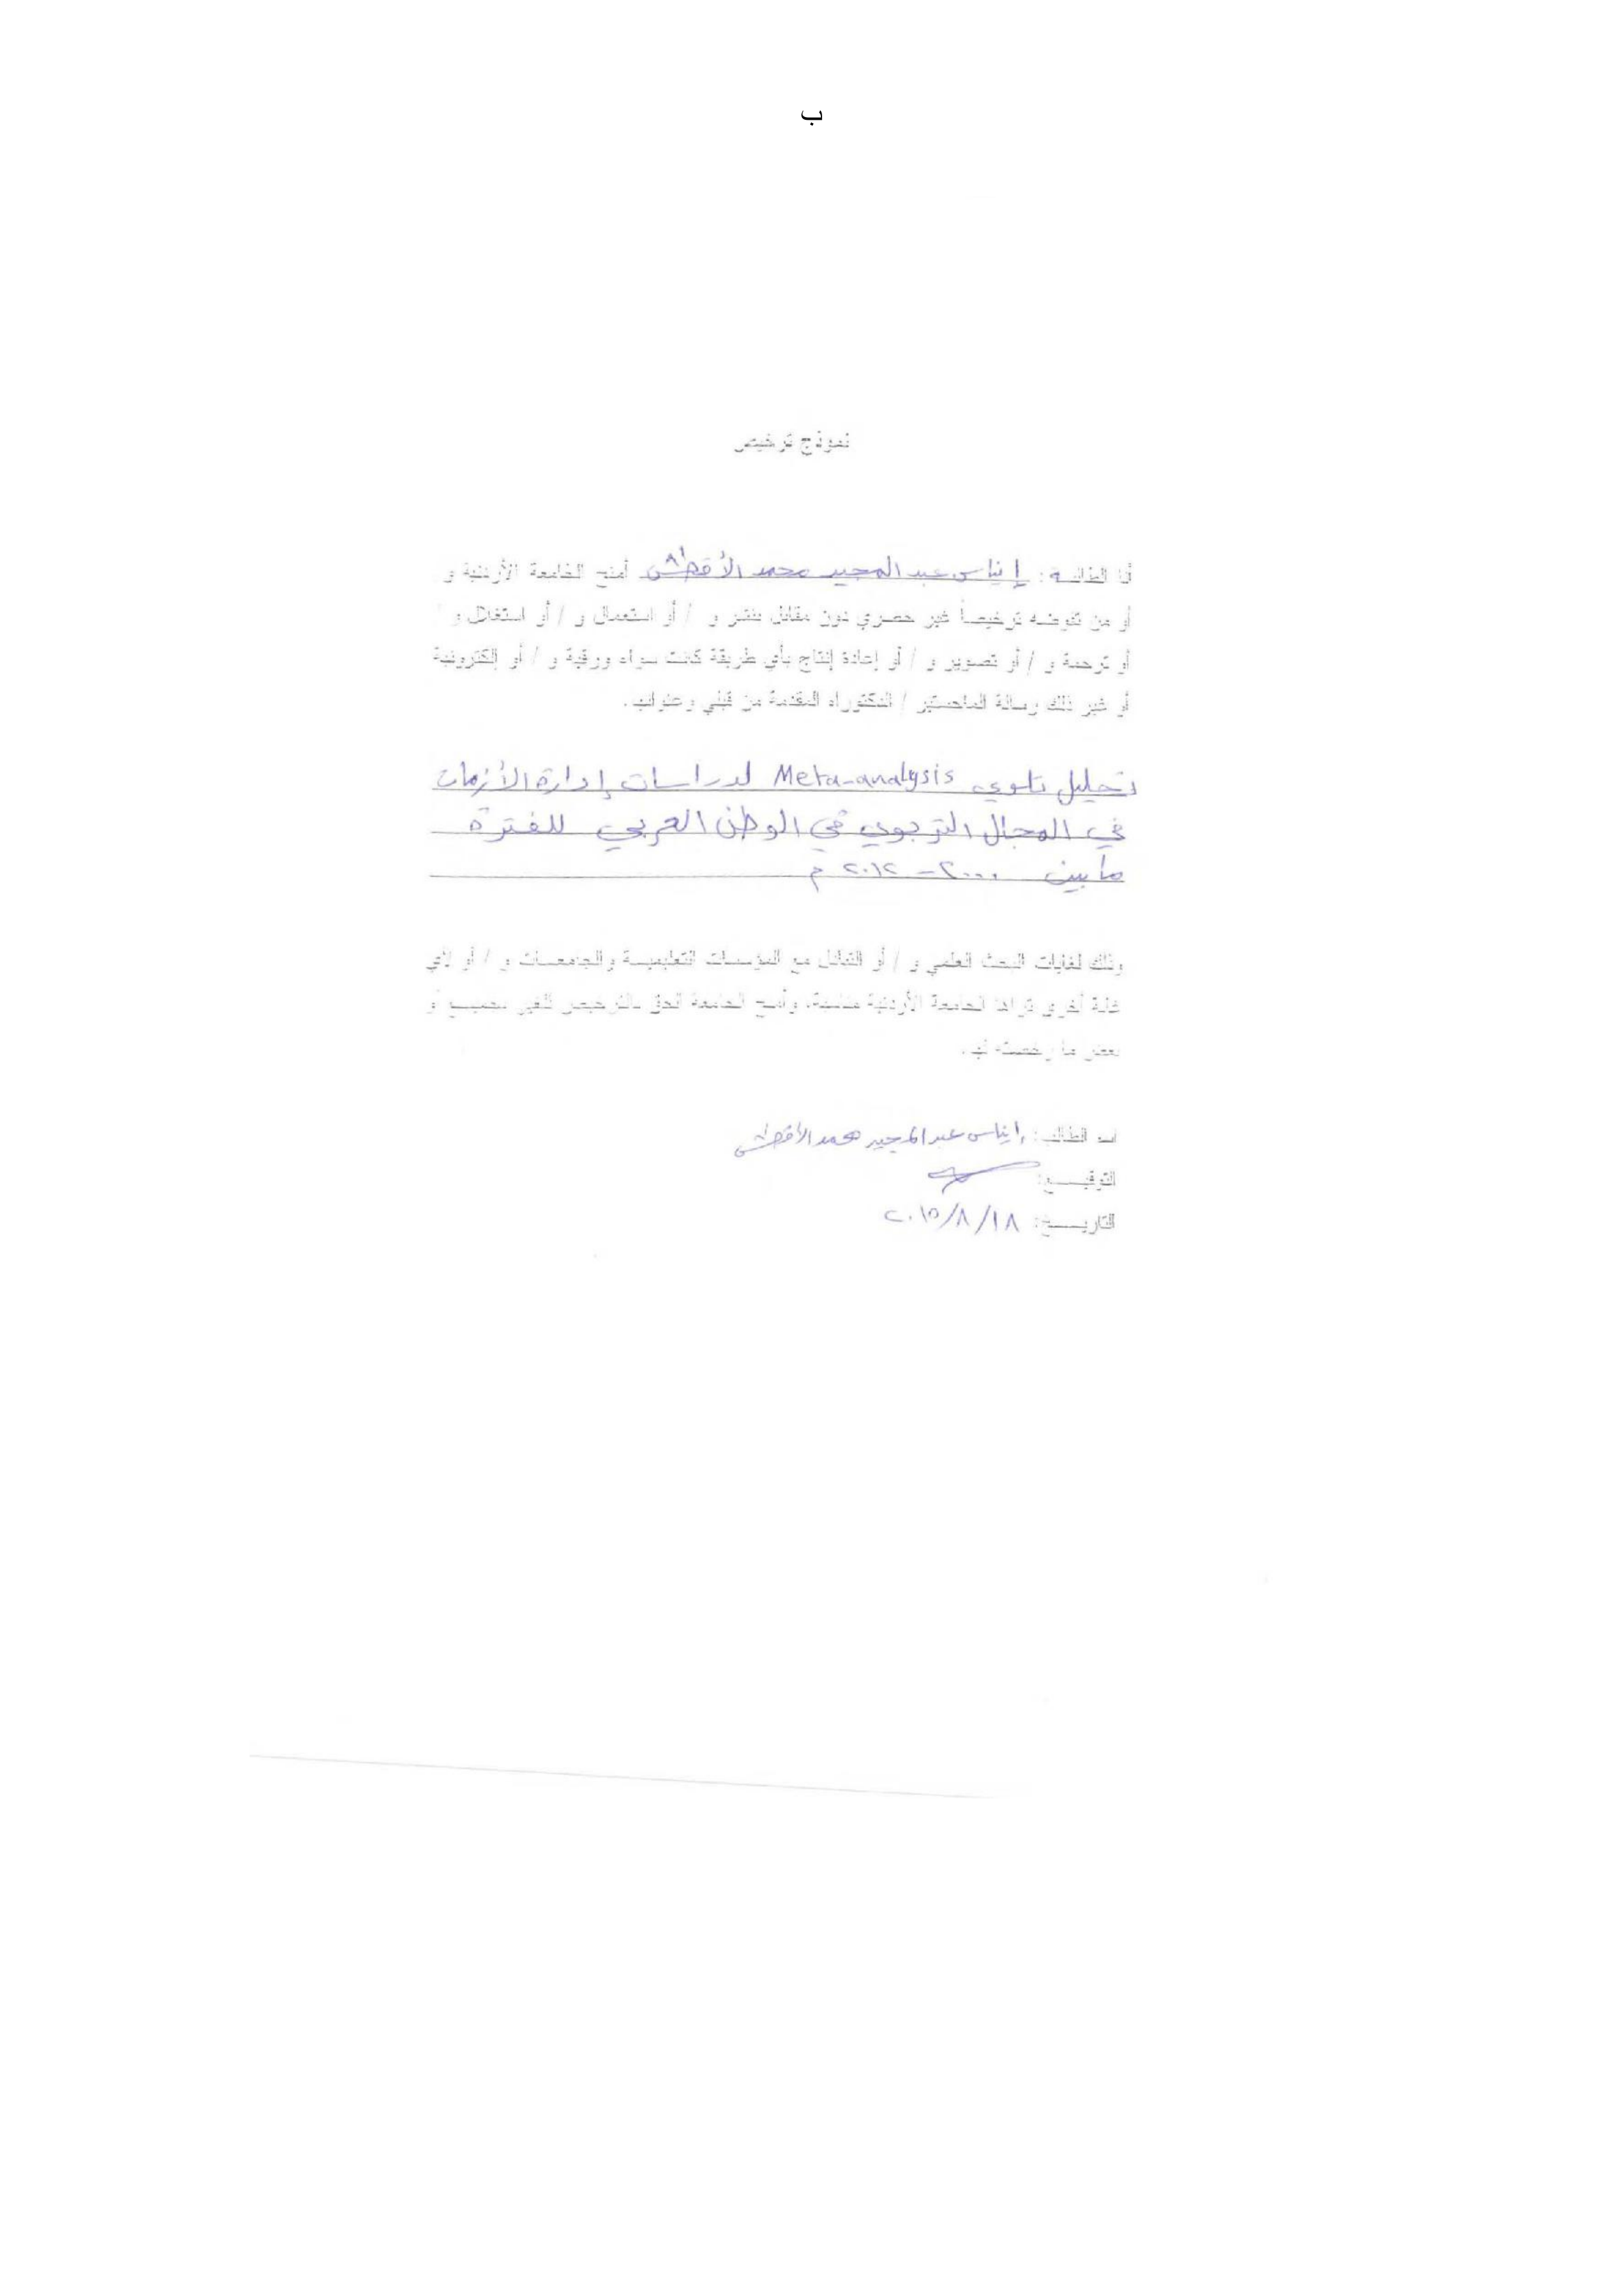 ب
نموذج ترخيص
أنا الطالبة : إيناس عبد المجيد محمد الأقطش أمنح الجامعة الأردنية و
أو من تفوضه ترخيصاً غير حصري دون مقابل بنشر و / أو استعمال و / أو استغلال و
أو ترجمة و / أو تصوير و / أو إعادة إنتاج بأي طريقة كانت سواء ورقية و / أو إلكترونية
أو غير ذلك رسالة الماجستير / الدكتوراه المقدمة من قبلي وعنوانها.
تحليل تلوي Meta-analysis لدراسات إدارة الأزمات
في المجال التربوي في الوطن العربي للفترة
ما بين ٢٠٠٠ – ٢٠١٢ م
وذلك لغايات البحث العلمي و / أو التبادل مع المؤسسات التعليمية والجامعات و / أو لأي
غاية أخرى تراها الجامعة الأردنية مناسبة، وأمنح الجامعة الحق بالترخيص للغير بجميع أو
بعض ما رخصته لها.
اسم الطالب: إيناس عبد المجيد محمد الأقطش
التوقيـــع:
التاريـــخ: ٢٠١٥/٨/١٨